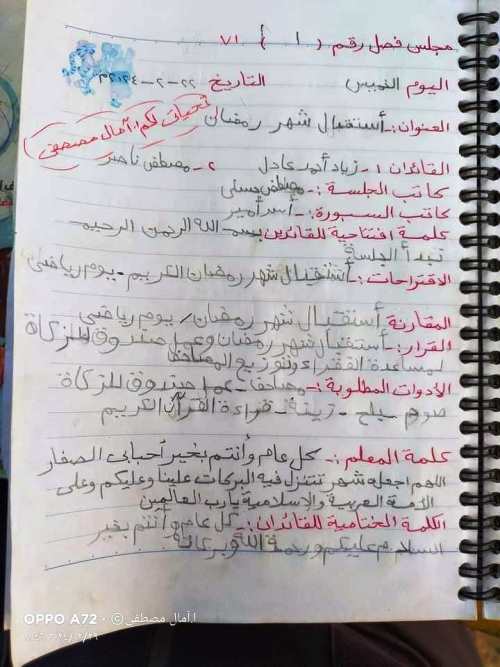 مجلس فصل رقم ( ١ ) ٧١
اليوم الخميس التاريخ ٢٢-٢-٢٠٢٤م
العنوان:- أستقبال شهر رمضان
تحياتى لكم أ.آمال مصطفى
القائدان ١- زياد أحمد عادل ٢- مصطفى ناصر
كاتب الجلسة:- مصطفى حسنى
كاتب السبورة:- أسر أمير
كلمة افتتاحية للقائدين بسم الله الرحمن الرحيم
نبدأ الجلسة
الاقتراحات:- أستقبال شهر رمضان الكريم - يوم رياضى
المقارنة أستقبال شهر رمضان/ يوم رياضى
القرار:- أستقبال شهر رمضان وعمل صندوق للزكاة
لمساعدة الفقراء وتوزيع المصاحف
الأدوات المطلوبة:- مصاحف - عمل صندوق للزكاة
صوم - بلح - زينة - قراءة القرآن الكريم
كلمة المعلم:- كل عام وأنتم بخير أحبابى الصغار
اللهم اجعله شهر تتنزل فيه البركات علينا وعليكم وعلى
الأمة العربية والإسلامية يارب العالمين
الكلمة الختامية للقائدان:- كل عام وأنتم بخير
السلام عليكم ورحمة الله وبركاته
OPPO A72 · © أ.آمال مصطفى